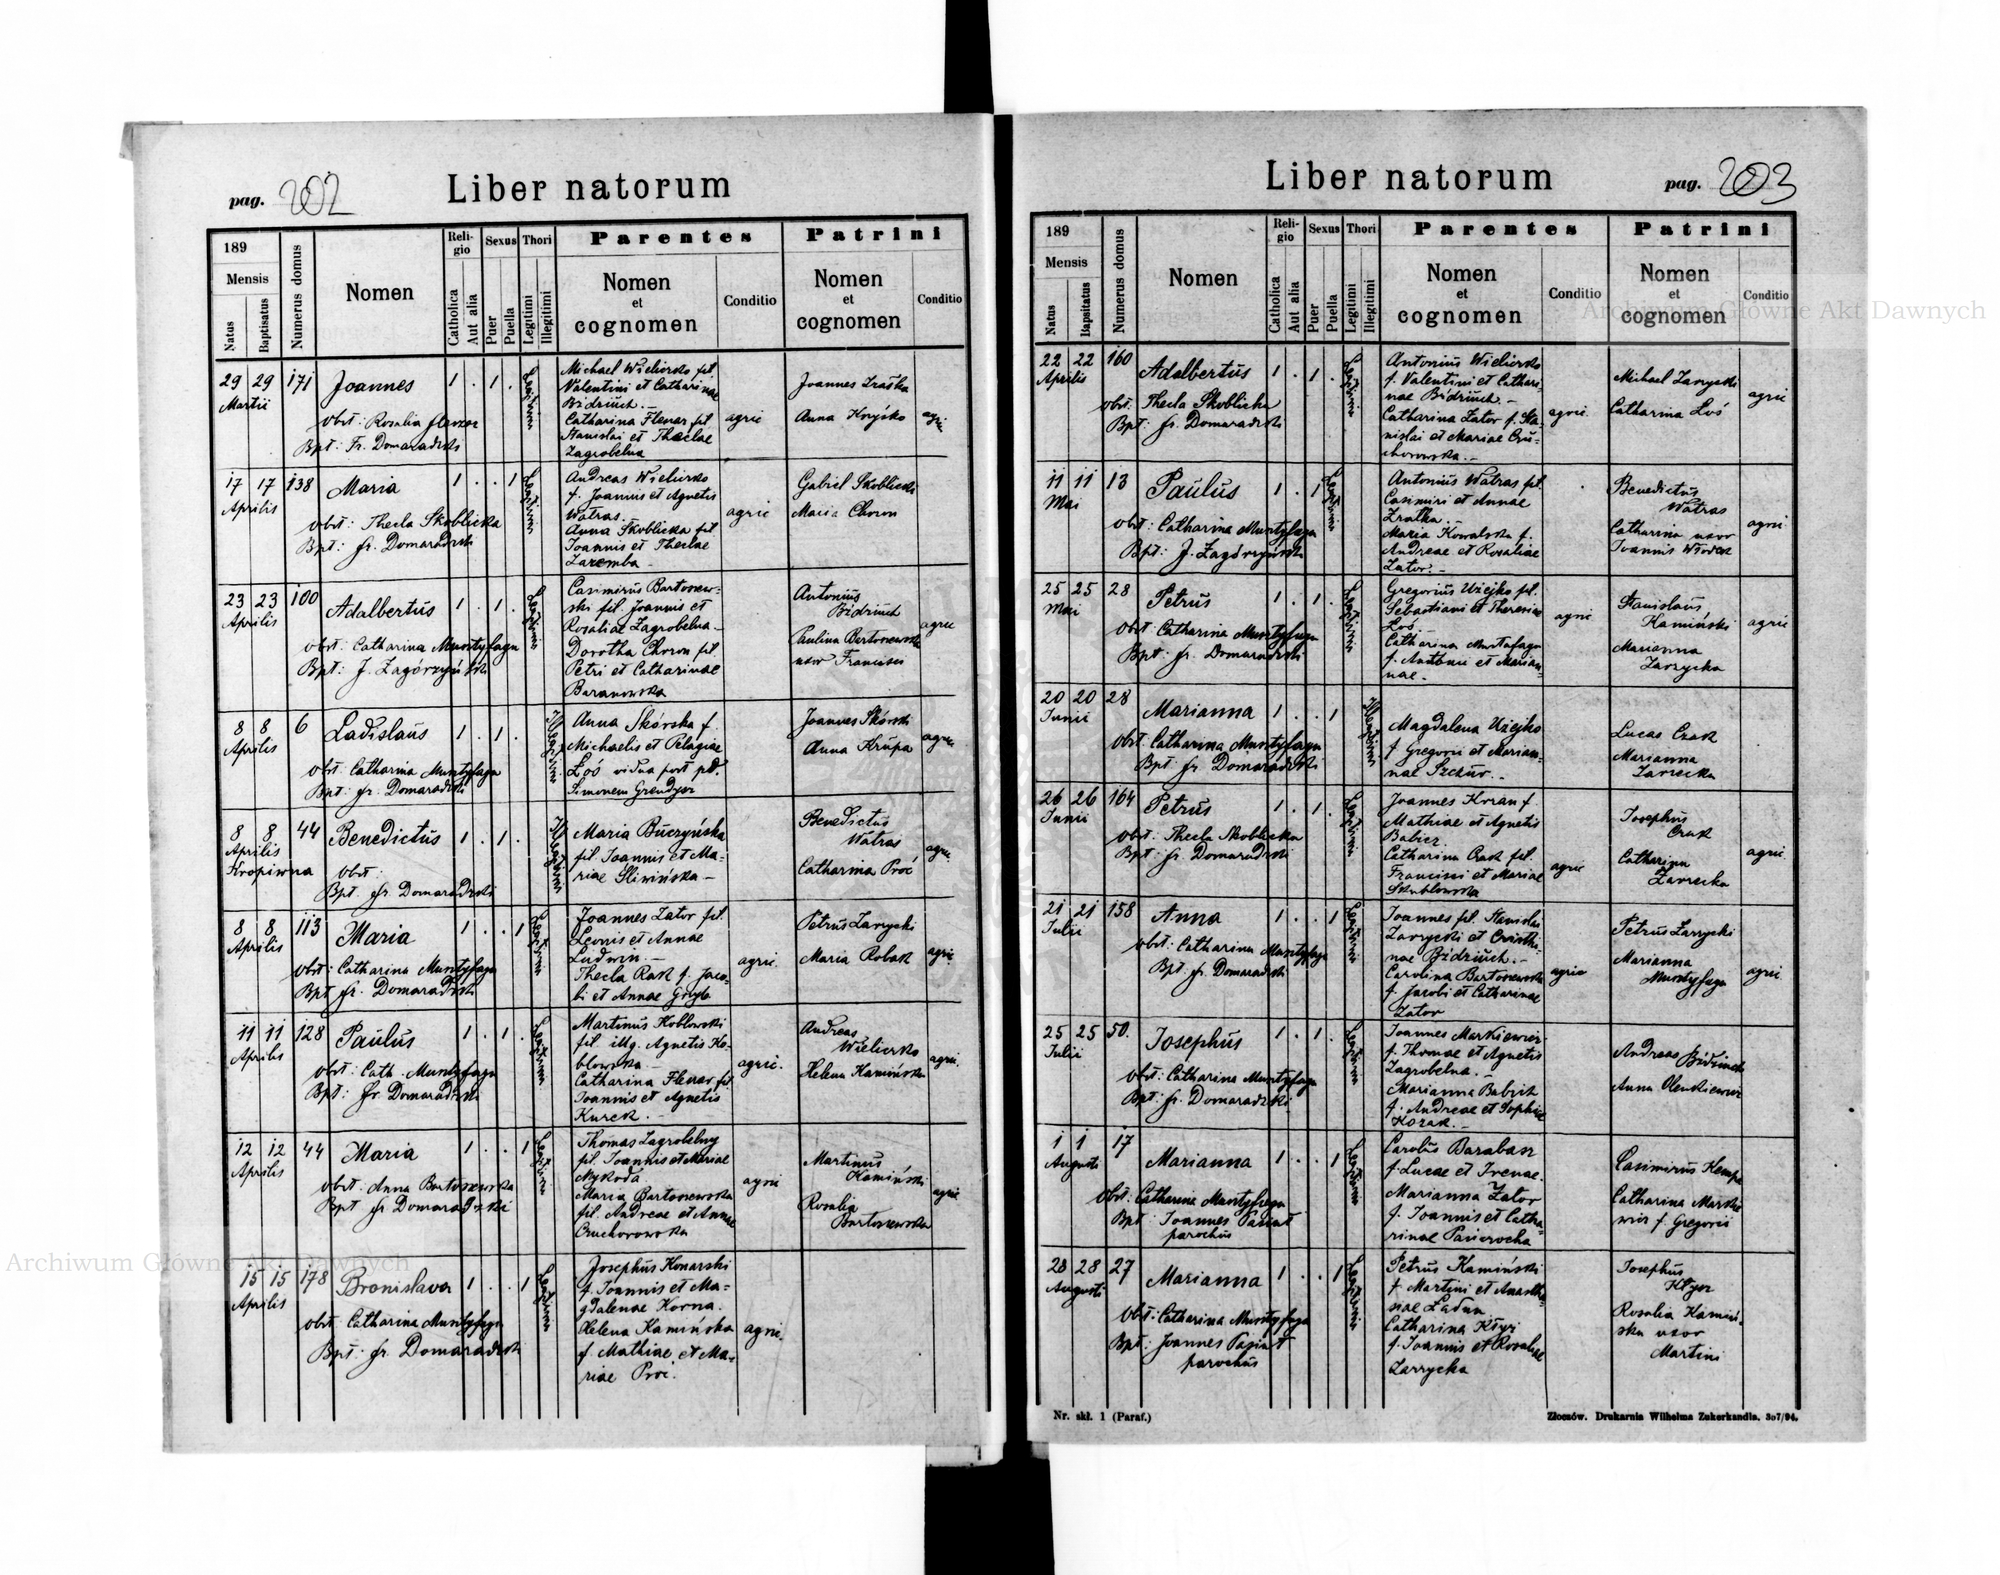 pag. 202
Liber natorum
189
Mensis
Natus
Baptisatus
Numerus domus
Nomen
Religio
Catholica
Aut alia
Sexus
Puer
Puella
Thori
Legitimi
Illegitimi
Parentes
Nomen
et
cognomen
Conditio
Patrini
Nomen
et
cognomen
Conditio
29 29 171 Joannes 1 . 1 . Legitimi
Martii
obst: Rosalia Flenar
Bpt: Fr. Domaradzki
Michael Wieliczko fil.
Valentini et Catharinae
Bidziuch.-
Catharina Flenar fil
Stanislai et Theclae
Zagrobelna
agric
Joannes Zratka
Anna Knyśko
agri.
17 17 138 Maria 1 . . 1 Legitimi
Aprilis
obst: Thecla Skoblicka
Bpt: fr. Domaradzki
Andreas Wieliczko
f. Joannis et Agnetis
Watras.
Anna Skoblicka fil
Joannis et Theclae
Zaremba -
agric
Gabriel Skoblicki
Maria Choron
23 23 100 Adalbertus 1 . 1 . Legitimi
Aprilis
obst: Catharina Muntyfagu
Bpt: J. Zagórzyński
Casimirus Bartoszew-
ski fil. Joannis et
Rosaliae Zagrobelna -
Dorotha Choron fil
Petri et Catharinae
Baranowska
Antonius
Bidziuch
Paulina Bartoszewska
uxor Francisci
agric
8 8 6 Ladislaus 1 . 1 . Illegitimi
Aprilis
obst: Catharina Muntyfagu
Bpt: fr. Domaradzki
Anna Skórska f.
Michaelis et Pelagiae
Łoś vidua post pd.
Simonem Grendysz
Joannes Skórski
Anna Krupa
agric
8 8 44 Benedictus 1 . 1 . Illegitimi
Aprilis
Kropiwna
obst:
Bpt. fr. Domaradzki
Maria Buczyńska
fil. Joannis et Ma-
riae Śliwińska -
Benedictus
Watras
Catharina Proć
agric
8 8 113 Maria 1 . . 1 Legitimi
Aprilis
obst: Catharina Muntyfagu
Bpt fr. Domaradzki
Joannes Zator fil.
Leonis et Annae
Ludwin. -
Thecla Rak f. Jaco-
bi et Annae Gryb
agric.
Petrus Zarzycki
Maria Robak
agric.
11 11 128 Paulus 1 . 1 . Legitimi
Aprilis
obst: Cath. Muntyfagu
Bpt: fr. Domaradzki
Martinus Koblowski
fil illg. Agnetis Ko-
blowska -
Catharina Flenar fil
Joannis et Agnetis
Kurek. -
agric.
Andreas
Wieliczko
Helena Kamińska
agric.
12 12 44 Maria 1 . . 1 Legitimi
Aprilis
obst: Anna Bartoszewska
Bpt fr Domaradzki
Thomas Zagrobelny
fil. Joannis et Mariae
Nykoda
Maria Bartoszewska
fil. Andreae et Annae
Cruchorowska
agric
Martinus
Kamiński
Rosalia
Bartoszewska
agric
15 15 178 Bronislava 1 . . 1 Legitimi
Aprilis
obst: Catharina Muntyfagu
Bpt: fr. Domaradzki
Josephus Konarski
f. Joannis et Ma-
gdalenae Korna.
Helena Kamińska
f. Mathiae et Ma-
riae Proć.
agric.
Archiwum Główne Akt Dawnych
Liber natorum
pag. 203
189
Mensis
Natus
Bapsitatus
Numerus domus
Nomen
Religio
Catholica
Aut alia
Sexus
Puer
Puella
Thori
Legitimi
Illegitimi
Parentes
Nomen
et
cognomen
Conditio
Patrini
Nomen
et
cognomen
Conditio
Archiwum Główne Akt Dawnych
22 22 160 Adalbertus 1 . 1 . Legitimi
Aprilis
obst: Thecla Skoblicka
Bpt: fr. Domaradzki
Antonius Wieliczko
f. Valentini et Cathari-
nae Bidziuch. -
Catharina Zator f. Sta-
nislai et Mariae Cru-
chorowska. -
agric
Michael Zarzycki
Catharina Łoś
agric
11 11 13 Paulus 1 . 1 . Legitimi
Mai
obst: Catharina Muntyfagu
Bpt: J. Zagórzyński
Antonius Watras fil.
Casimiri et Annae
Zratka. -
Maria Kowalska f.
Andreae et Rosaliae
Zator. -
Benedictus
Watras
Catharina uxor
Joannis Włodek
agric
25 25 28 Petrus 1 . 1 . Legitimi
Mai
obst: Catharina Muntyfagu
Bpt: fr. Domaradzki
Gregorius Użejko fil.
Sebastiani et Theresiae
Łoś. -
Catharina Muntafagu
f. Antonii et Marian-
nae. -
agric
Stanislaus
Kamiński
Marianna
Zarzycka
agric
20 20 28 Marianna 1 . . 1 Illegitimi
Junii
obst: Catharina Muntyfagu
Bpt: fr. Domaradzki
Magdalena Użejko
f. Gregorii et Marian-
nae Szchur. -
Lucas Czak
Marianna
Zarzecka
26 26 164 Petrus 1 . 1 . Legitimi
Junii
obst: Thecla Skoblicka
Bpt: fr. Domaradzki
Joannes Kozan f.
Mathiae et Agnetis
Babicz.
Catharina Czak fil.
Francisci et Mariae
Skublowska
agric
Josephus
Czak
Catharina
Zarzecka
agric
21 21 158 Anna 1 . . 1 Legitimi
Julii
obst: Catharina Muntyfagu
Bpt. fr. Domaradzki
Joannes fil. Stanislai
Zarzycki et Cristi-
nae Bidziuch. -
Carolina Bartoszewska
f. Jacobi et Catharinae
Zator
agric
Petrus Zarzycki
Marianna
Muntyfagu
agric
25 25 50. Josephus 1 . 1 . Legitimi
Julii
obst: Catharina Muntyfagu
Bpt: fr. Domaradzki
Joannes Markiewicz
f. Thomae et Agnetis
Zagrobelna. -
Marianna Babrik
f. Andreae et Sophiae
Kozak. -
Andreas Bidziuch
Anna Olenkiewicz
1 1 17 Marianna 1 . . 1 Legitimi
Augusti
obst: Catharina Muntyfagu
Bpt: Joannes Pasiut
parochus
Carolus Barabasz
f. Lucae et Irenae.
Marianna Zator
f. Joannis et Catha-
rinae Paucrocha
Casimirus Klempa
Catharina Markie
wicz f. Gregorii
28 28 27 Marianna 1 . . 1 Legitimi
Augusti
obst: Catharina Muntyfagu
Bpt: Joannes Pasiut
parochus
Petrus Kamiński
f. Martini et Anasta-
siae Ladun.
Catharina Kłyz
f. Joannis et Rosaliae
Zarzycka
Josephus
Kłyz
Rosalia Kamiń-
ska uxor
Martini
Nr. skł. 1 (Paraf.)
Złoczów. Drukarnia Wilhelma Zukerkandla. 307/94.